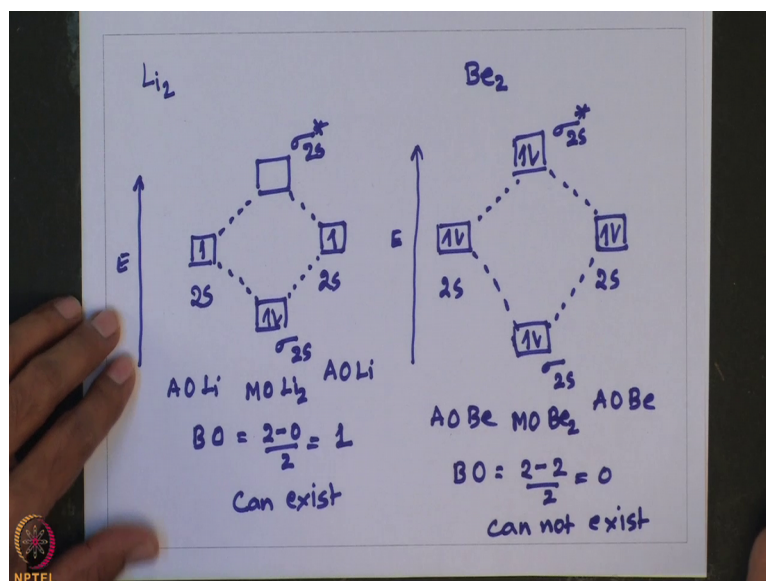 Li₂
σ*2s
E
1
1
2s
2s
1L
σ2s
AO Li MO Li₂ AO Li
BO = 2-0/2 = 1
Can exist
Be₂
σ*2s
1L
E
1L
1L
2s
2s
1L
σ2s
AO Be MO Be₂ AO Be
BO = 2-2/2 = 0
can not exist
NPTEL